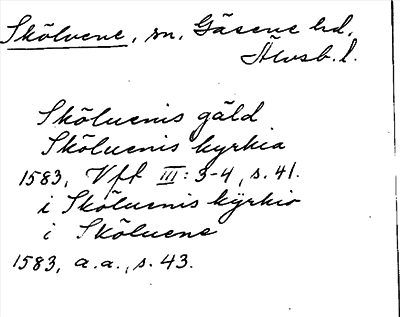 Skölvene, sn, Gäsene hd,
Älvsb. l.
Skõluenis gäld
Skõluenis kyrkia
1583, Vfft III: 3-4, s. 41.
i Skõluenis kÿrkio
i Skõluene
1583, a.a., s. 43.